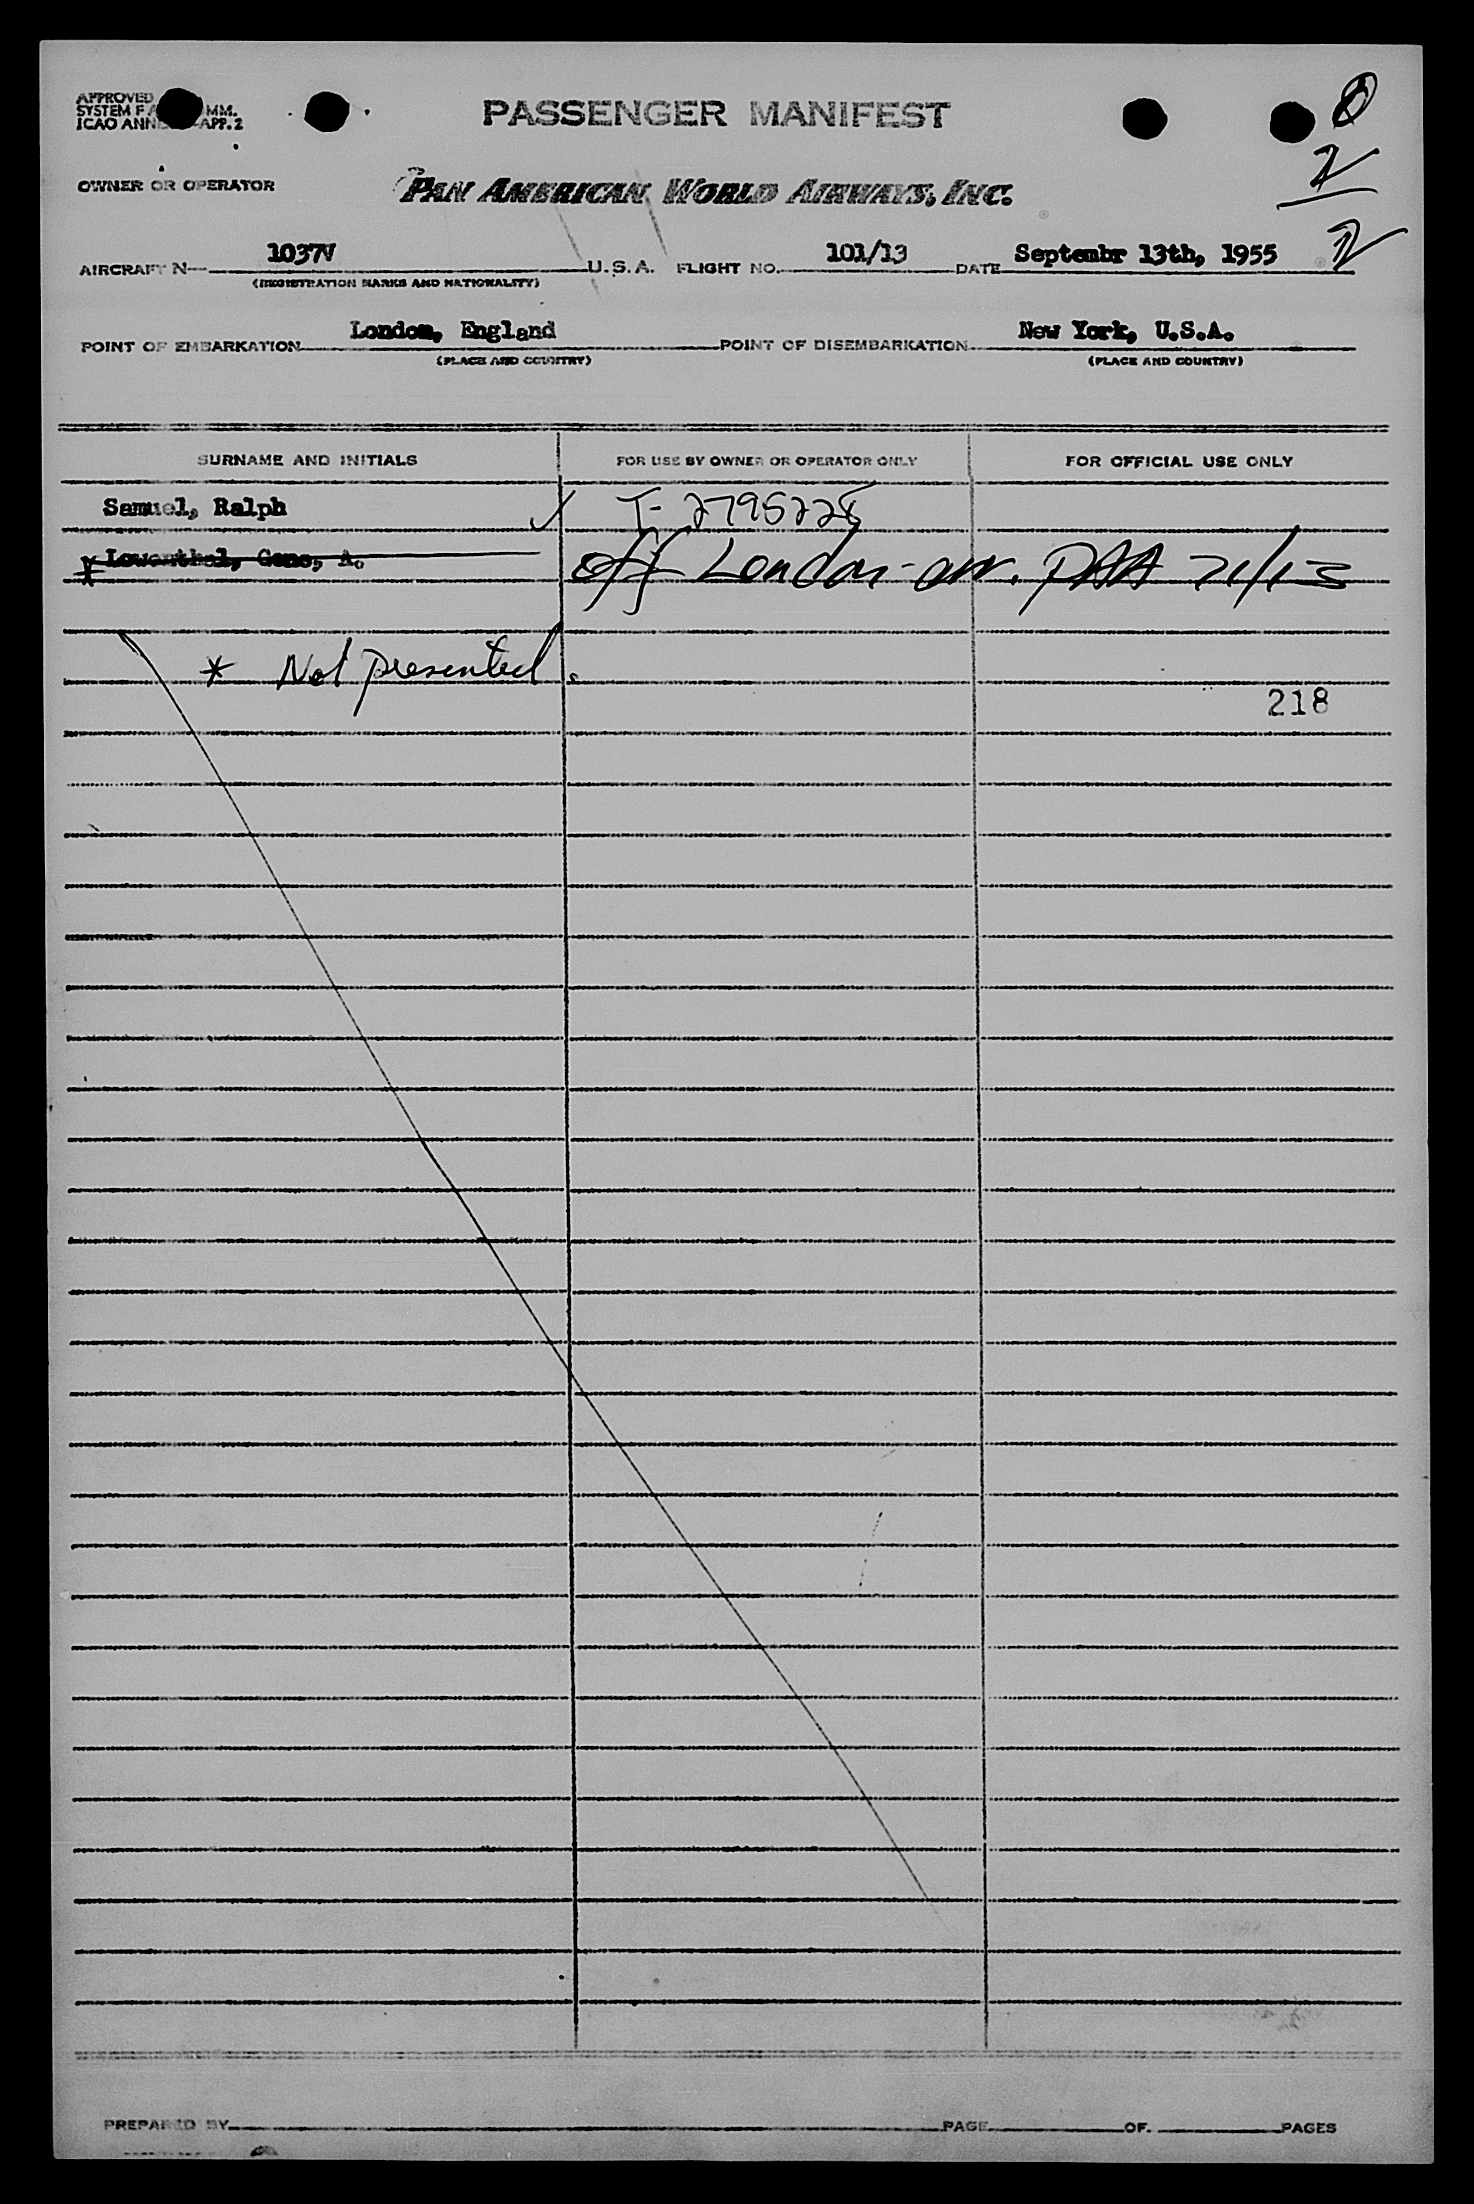 APPROVED
SYSTEM F A MM.
ICAO ANN APP. 2
PASSENGER MANIFEST
0
2
2
OWNER OR OPERATOR PAN AMERICAN WORLD AIRWAYS, INC.
AIRCRAFT N— 1037V U.S.A. FLIGHT NO. 101/13 DATE Septembr 13th, 1955
(REGISTRATION MARKS AND NATIONALITY)
POINT OF EMBARKATION London, England POINT OF DISEMBARKATION New York, U.S.A.
(PLACE AND COUNTRY) (PLACE AND COUNTRY)
SURNAME AND INITIALS FOR USE BY OWNER OR OPERATOR ONLY FOR OFFICIAL USE ONLY
Samuel, Ralph ✓ I-2795228
* Lowenthal, Gene, A. off London - arr. PAA 71/13
* Not presented.
218
PREPARED BY PAGE OF PAGES